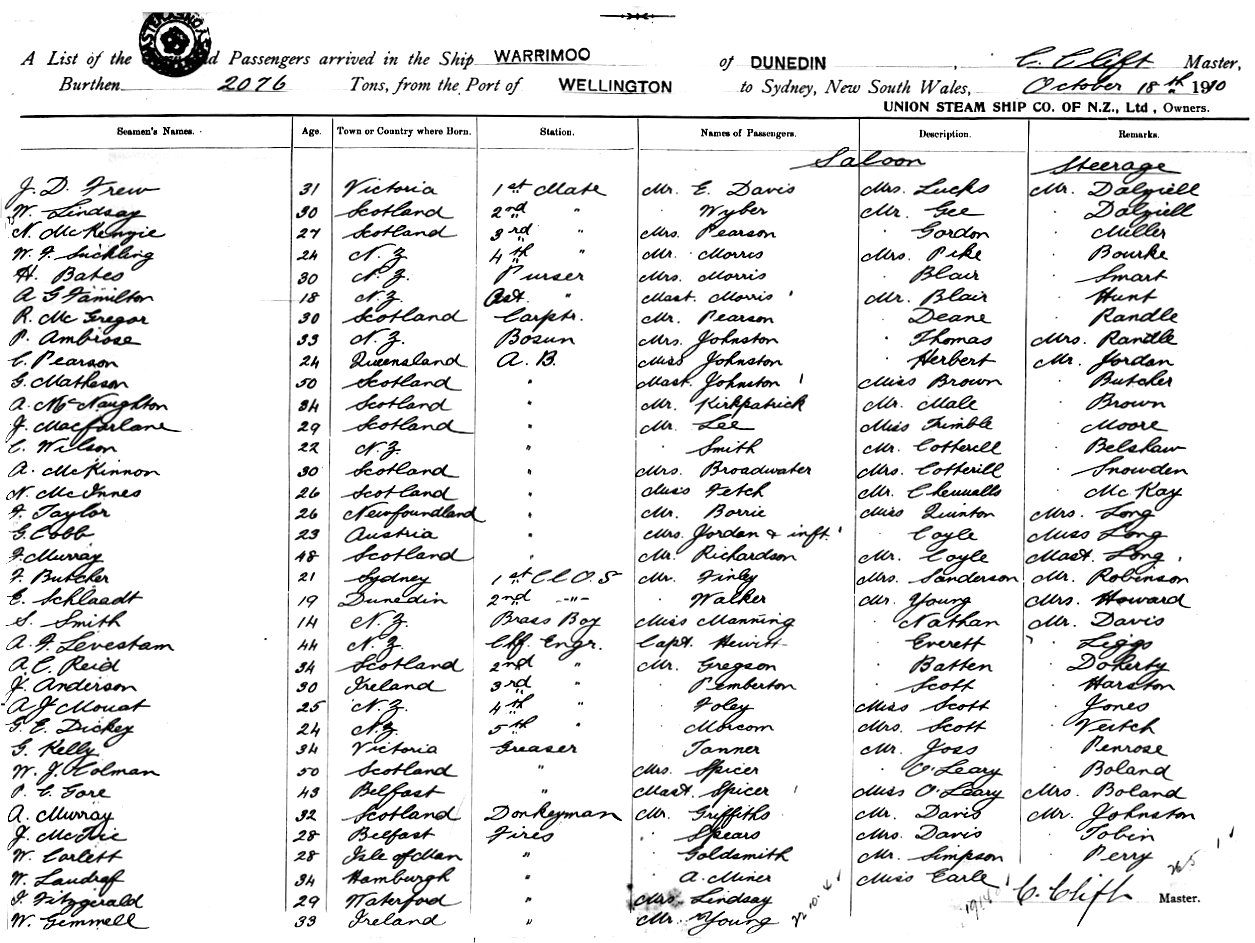 A List of the d Passengers arrived in the Ship WARRIMOO of DUNEDIN , C. Clift Master,
Burthen 2076 Tons, from the Port of WELLINGTON to Sydney, New South Wales, October 18th 1910
UNION STEAM SHIP CO. OF N.Z., Ltd, Owners.
Seamen's Names. Age. Town or Country where Born. Station. Names of Passengers. Description. Remarks.
Saloon Steerage
J. D. Frew 31 Victoria 1st Mate Mr. E. Davis Mrs. Lucks Mr. Dalziell
W. Lindsay 30 Scotland 2nd " Wyber Mr. Gee Dalziell
N. McKenzie 27 Scotland 3rd " Mrs. Pearson Gordon Miller
W. F. Suckling 24 N.Z. 4th " Mr. Morris Mrs. Pike Bourke
H. Bates 30 N.Z. Purser Mrs. Morris Blair Smart
A G Familton 18 N.Z. Ast. " Mast. Morris Mr. Blair Hunt
R. Mc Gregor 30 Scotland Carptr. Mr. Pearson Deane Randle
P. Ambrose 33 N.Z. Bosun Mrs. Johnston Thomas Mrs. Randle
C. Pearson 24 Queensland A.B. Miss Johnston Herbert Mr. Jordan
G. Matheson 50 Scotland " Mast. Johnston Miss Brown Butcher
A. McNaughton 34 Scotland " Mr. Kirkpatrick Mr. Male Brown
J. Macfarlane 29 Scotland " Mr. Lee Miss Trimble Moore
C. Wilson 22 N.Z. " Smith Mr. Cotterill Belshaw
A. McKinnon 30 Scotland " Mrs. Broadwater Mrs. Cotterill Snowden
N. McInnes 26 Scotland " Miss Fetch Mr. McKay
F. Taylor 26 Newfoundland " Mr. Borrie Miss Quinton Mrs. Long
G. Cobb 23 Austria " Mrs. Jordan & inft. Coyle Miss Long
F. Murray 48 Scotland " Mr. Richardson Mr. Coyle Mast. Long
F. Butcher 21 Sydney 1st Cl O.S Mr. Finley Mrs. Sanderson Mr. Robinson
E. Schlaadt 19 Dunedin 2nd -"- Walker Mr. Young Mrs. Howard
S. Smith 14 N.Z. Brass Boy Miss Manning Nathan Mr. Davis
A. F. Levestam 44 N.Z. Chf. Engr. Capt. Hewitt Everett Liggs
A C. Reid 34 Scotland 2nd " Mr. Gregson Batten Doherty
J. Anderson 30 Ireland 3rd " Pemberton Scott Harston
A J Mouat 25 N.Z. 4th " Foley Miss Scott Jones
G. E. Dickey 24 N.Z. 5th " Morcom Mrs. Scott Veitch
G. Kelly 34 Victoria Greaser Tanner Mr. Joss Penrose
W. J. Holman 50 Scotland " Mrs. Spicer O'Leary Boland
P. C. Gore 43 Belfast " Mast. Spicer Miss O'Leary Mrs. Boland
A. Murray 32 Scotland Donkeyman Mr. Griffiths Mr. Davis Mr. Johnston
J. 28 Belfast Fires Spears Mrs. Davis Tobin
W. Corlett 28 Isle of Man " Goldsmith Mr. Simpson Perry
W. Laudraf 34 Hamburgh " A. Miner Miss Earle
C. Clift Master.
J. Fitzgerald 29 Waterford " Mrs. Lindsay
W. Gemmell 33 Ireland " Mr. Young